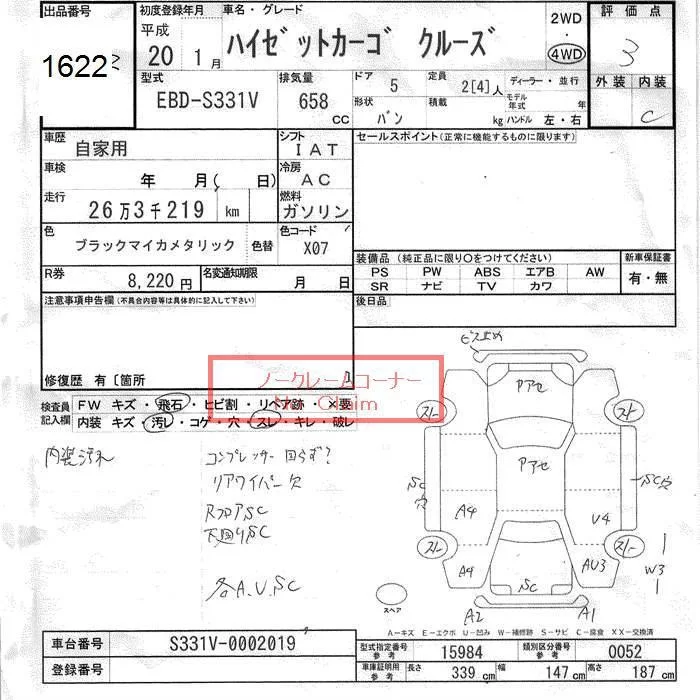 出品番号 初度登録年月 車名・グレード 2WD ・ 4WD 評価点
1622 平成 20年 1月 ハイゼットカーゴ クルーズ 3
型式 排気量 ドア 5 定員 2[4]人 ディーラー・並行 外装 内装
EBD-S331V 658 CC 形状 バン 積載 kg モデル年式 年 ハンドル 左・右 C
車歴 自家用 シフト IAT セールスポイント(正常に機能するものに限ります)
車検 年 月( 日) 冷房 AC
走行 26万3千219 km 燃料 ガソリン
色 ブラックマイカメタリック 色替 色コード X07
装備品 (純正品に限り○をつけてください) 新車保証書
PS PW ABS エアB AW 有・無
SR ナビ TV カワ
R券 8,220円 名変通知期限 月 日 後日品
注意事項申告欄(不具合内容等は具体的に記入して下さい)
修復歴 有〔箇所 〕
ノークレームコーナー
No Claim
検査員記入欄 FW キズ・飛石・ヒビ割・リペア跡・×要
内装 キズ・汚レ・コゲ・穴・スレ・キレ・破レ
内装汚れ
コンプレッサー回らず?
リアワイパー欠
RフロアSC
下廻りSC
各A.U.SC
ビス止め
Pアセ
Pアセ
スリー スリー
SC穴 SC穴
A4 U4
スリー スリー
A4 AU3 W3
SC
A2 A1
スペア
A-キズ E-エクボ U-凹み W-補修跡 S-サビ C-腐食 XX-交換済
車台番号 S331V-0002019 型式指定番号 参考 15984 類別区分番号 参考 0052
登録番号 車庫証明用 参考 長さ 339 cm 幅 147 cm 高さ 187 cm